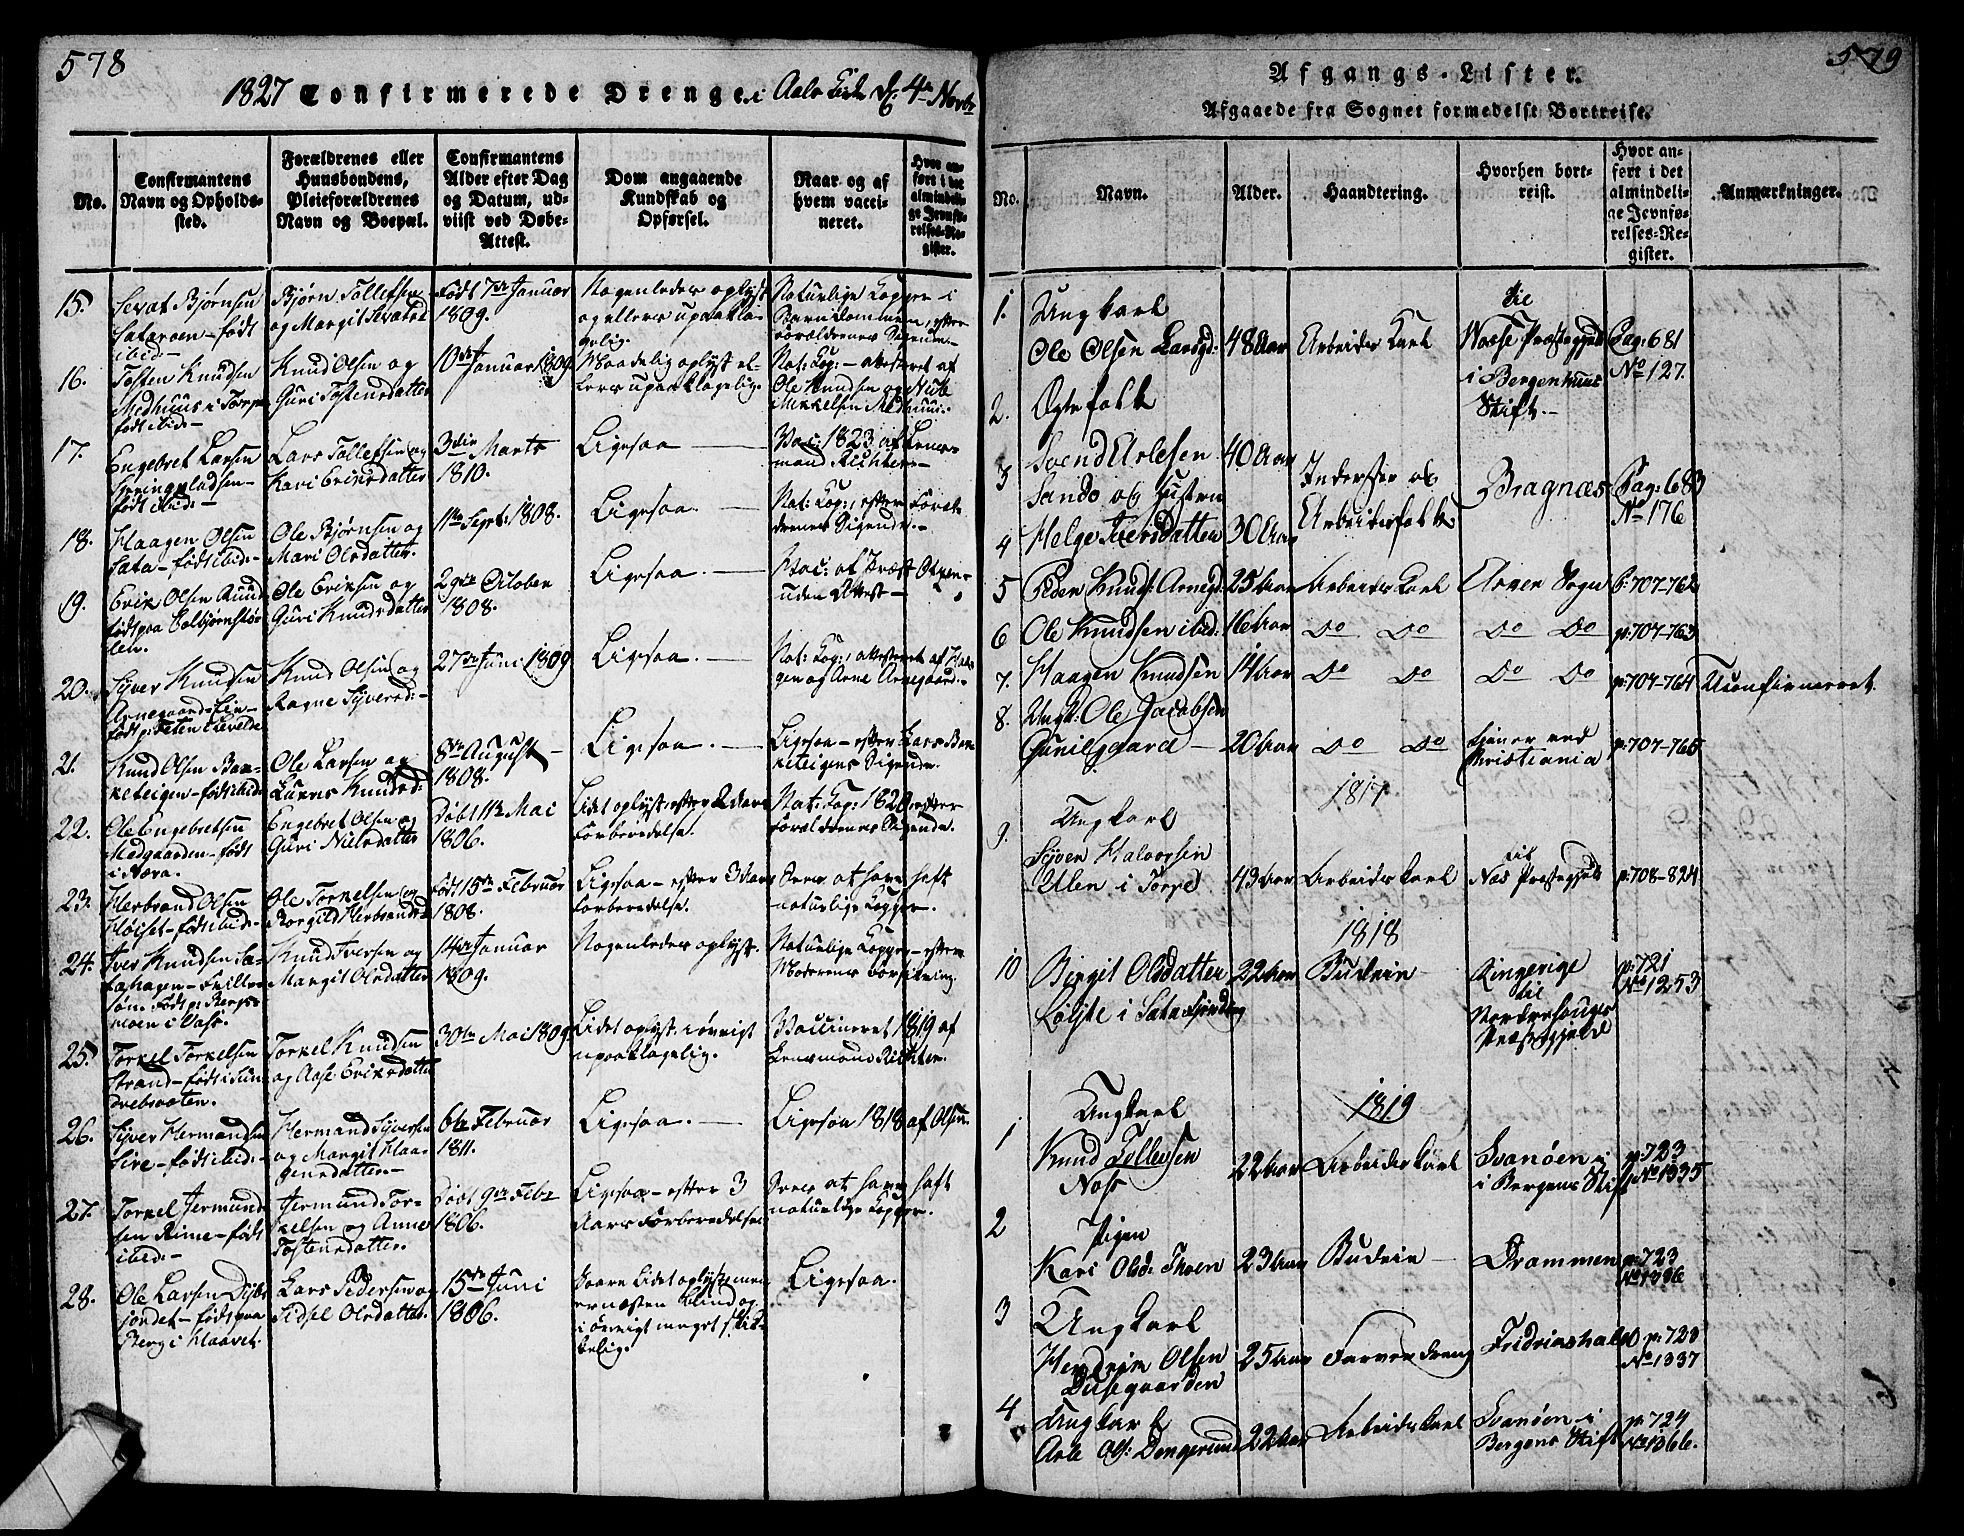 578
1827 Confirmerede Drenge i Aals Kirke d. 4de Novbr
No.
Confirmantens Navn og Opholds-sted.
Forældrenes eller Huusbondens, Pleieforældrenes Navn og Boepæl.
Confirmantens Alder efter Dag og Datum, ud-viist ved Døbe-Attest.
Dom angaaende Kundskab og Opførsel.
Naar og af hvem vacci-neret.
Hvor an-ført i det almindeli-ge Jevnfø-relses-Re-gister.
15.
Sevat Bjørnsen
født
ibid.
Bjørn Tollefsen
og Margit Sevatsd
Født 7de Januar
1809.
Nogenledes oplyst
og ellers upaakla-
gelig.
Naturlige Kopper i
Barndommen, efter
Forældrenes Sigende.
16.
Tosten Knudsen
Medhuus i Torpe
født ibid.
Knud Olsen og
Guri Tostensdatter
10de Januar 1809.
Maadelig oplyst el-
lers upaaklagelig.
Nat: Kop: attesteret af
Ole Knudsen og Niels
Mikkelsen Medhuus.
17.
Engebret Larsen
født ibid.
Lars Tollefsen og
Kari Eriksdatter
3die Marts
1810.
Ligesaa
Vac: 1823 af Lens-
mand Richter.
18.
Haagen Olsen
Sata født ibid.
Ole Bjørnsen og
Mari Olsdatter.
11te Sept: 1808.
Ligesaa.
Nat: Kop:, efter Foræl-
drenes Sigende.
19.
Erik Olsen Ruud
født paa
len.
Ole Eriksen og
Guri Knudsdatter
29de October
1808.
Ligesaa.
Vac: af Præst
uden Attest
20.
Syver Knudsen
Arnegaard
Knud Olsen og
Ragne Syversd:
27de Juni 1809
Ligesaa.
Nat: Kop:, attesteret af Haa-
gen og Arne Arnegaard.
21.
Knud Olsen Bak-
keteigen født ibid.
Ole Larsen og
Knudsd:
8de August
1808.
Ligesaa.
Ligesaa efter Lars Bak-
keteigens Sigende.
22.
Ole Engebretsen
Medgaarden født
i Næra.
Engebret Olsen og
Guri Nielsdatter
Døbt 11te Mai
1806.
Lidet oplyst efter 2 Aars
Forberedelse.
Nat: Kop: 1820 efter
Forældrenes Sigende.
23.
Herbrand Olsen
født ibid.
Ole Torkelsen og
Borgild Herbrandsd
Født 15de Februar
1808.
Ligesaa efter 3 Aars
Forberedelse.
Sees at have haft
naturlige Kopper.
24.
Iver Knudsen Sa-
tahagen
Født p: Bergs-
moen i Vass.
Knud Iversen og
Margit Olsdatter
14de Januar
1809.
Nogenledes oplyst.
Naturlige Kopper efter
Moderens Forsikring
25.
Torkel Torkelsen
Strand født i Sun-
drebraaten.
Torkel Knudsen
og Aase Eriksdatter
30te Mai 1809.
Lidet oplyst, i øvrigt
upaaklagelig.
Vaccineret 1819 af
Lensmand Richter.
26.
Syver Hermandsen
født ibid.
Hermand Syversen
og Margit Haa-
gensdatter.
6te Februar
1811.
Ligesaa.
Ligesaa 1818 af Olsen.
27.
Torkel Jermund-
sen Rime født
ibid.
Jermund Tor-
kelsen og Anne
Tostensdatter.
Døbt 9de Febr
1806.
Ligesaa efter 3
Aars Forberedelse.
Sees at have haft
naturlige Kopper.
28.
Ole Larsen
jordet født paa
Berg i Klaavet.
Lars Pedersen og
Sidsel Olsdatter.
15de Juni
1806.
Lidet oplyst, men
er næsten blind og
i øvrigt meget skik-
kelig.
Ligesaa.
579
Afgangs-Lister.
Afgaaede fra Sognet formedelst Bortreise.
No.
Navn.
Alder.
Haandtering.
Hvorhen bort-reist.
Hvor an-ført i det almindeli-ge Jevnfø-relses-Re-gister.
Anmærkninger.
1.
Ungkarl
Ole Olsen Larsgd:
48 Aar
Arbeids Karl
til
Præstegjeld
i Bergenhuus
Stift.
Pag: 681
No 127.
2.
Egtefolk
3
Svend Erlesen
Sando og Hustru
40 Aar
Inderster og
Arbeidsfolk
Bragnæs
Pag: 683
No 176
4
Helge Iversdatter
30 Aar
5
Peder Knuds: Arnegd:
25 Aar
Arbeids Karl
Sogn
p: 707-762
6
Ole Knudsen ibid:
16 Aar
Do Do
Do Do
p: 707-763
7.
Haagen Knudsen
14 Aar
Do Do
Do Do
p: 707-764
Uconfirmeret
8.
Ungk: Ole Jacobsen
Gunilgaard
20 Aar
Do Do
tjener ved
Christiania
p: 707-765
1817
9.
Ungkarl
Syver Halvorsen
Ulen i Torpe
43 Aar
Arbeids Karl
til
Næs Præstegjeld
p: 708-824
1818
10
Birgit Olsdatter
22 Aar
Budeie
Ringerige
til
Norderhougs
Præstegjeld
p: 721
No 1253
1819
1
Ungkarl
Knud Tollevsen
Noss
22 Aar
Arbeidskarl
Svanöen i
i Bergens Stift
p: 723
No 1335
2
Pigen
Kari Olsd: Thoen
23 Aar
Budeie
Drammen
p: 723
No 1336
3
Ungkarl
Hendrik Olsen
Dusegaarden
25 Aar
Farver dreng
Fridrichshald
p: 723
No 1337
4
Ungkarl
Asle Ols: Dengerud
22 Aar
Arbeidskarl
Svanöen i
Bergens Stift
p: 724
No 1366.